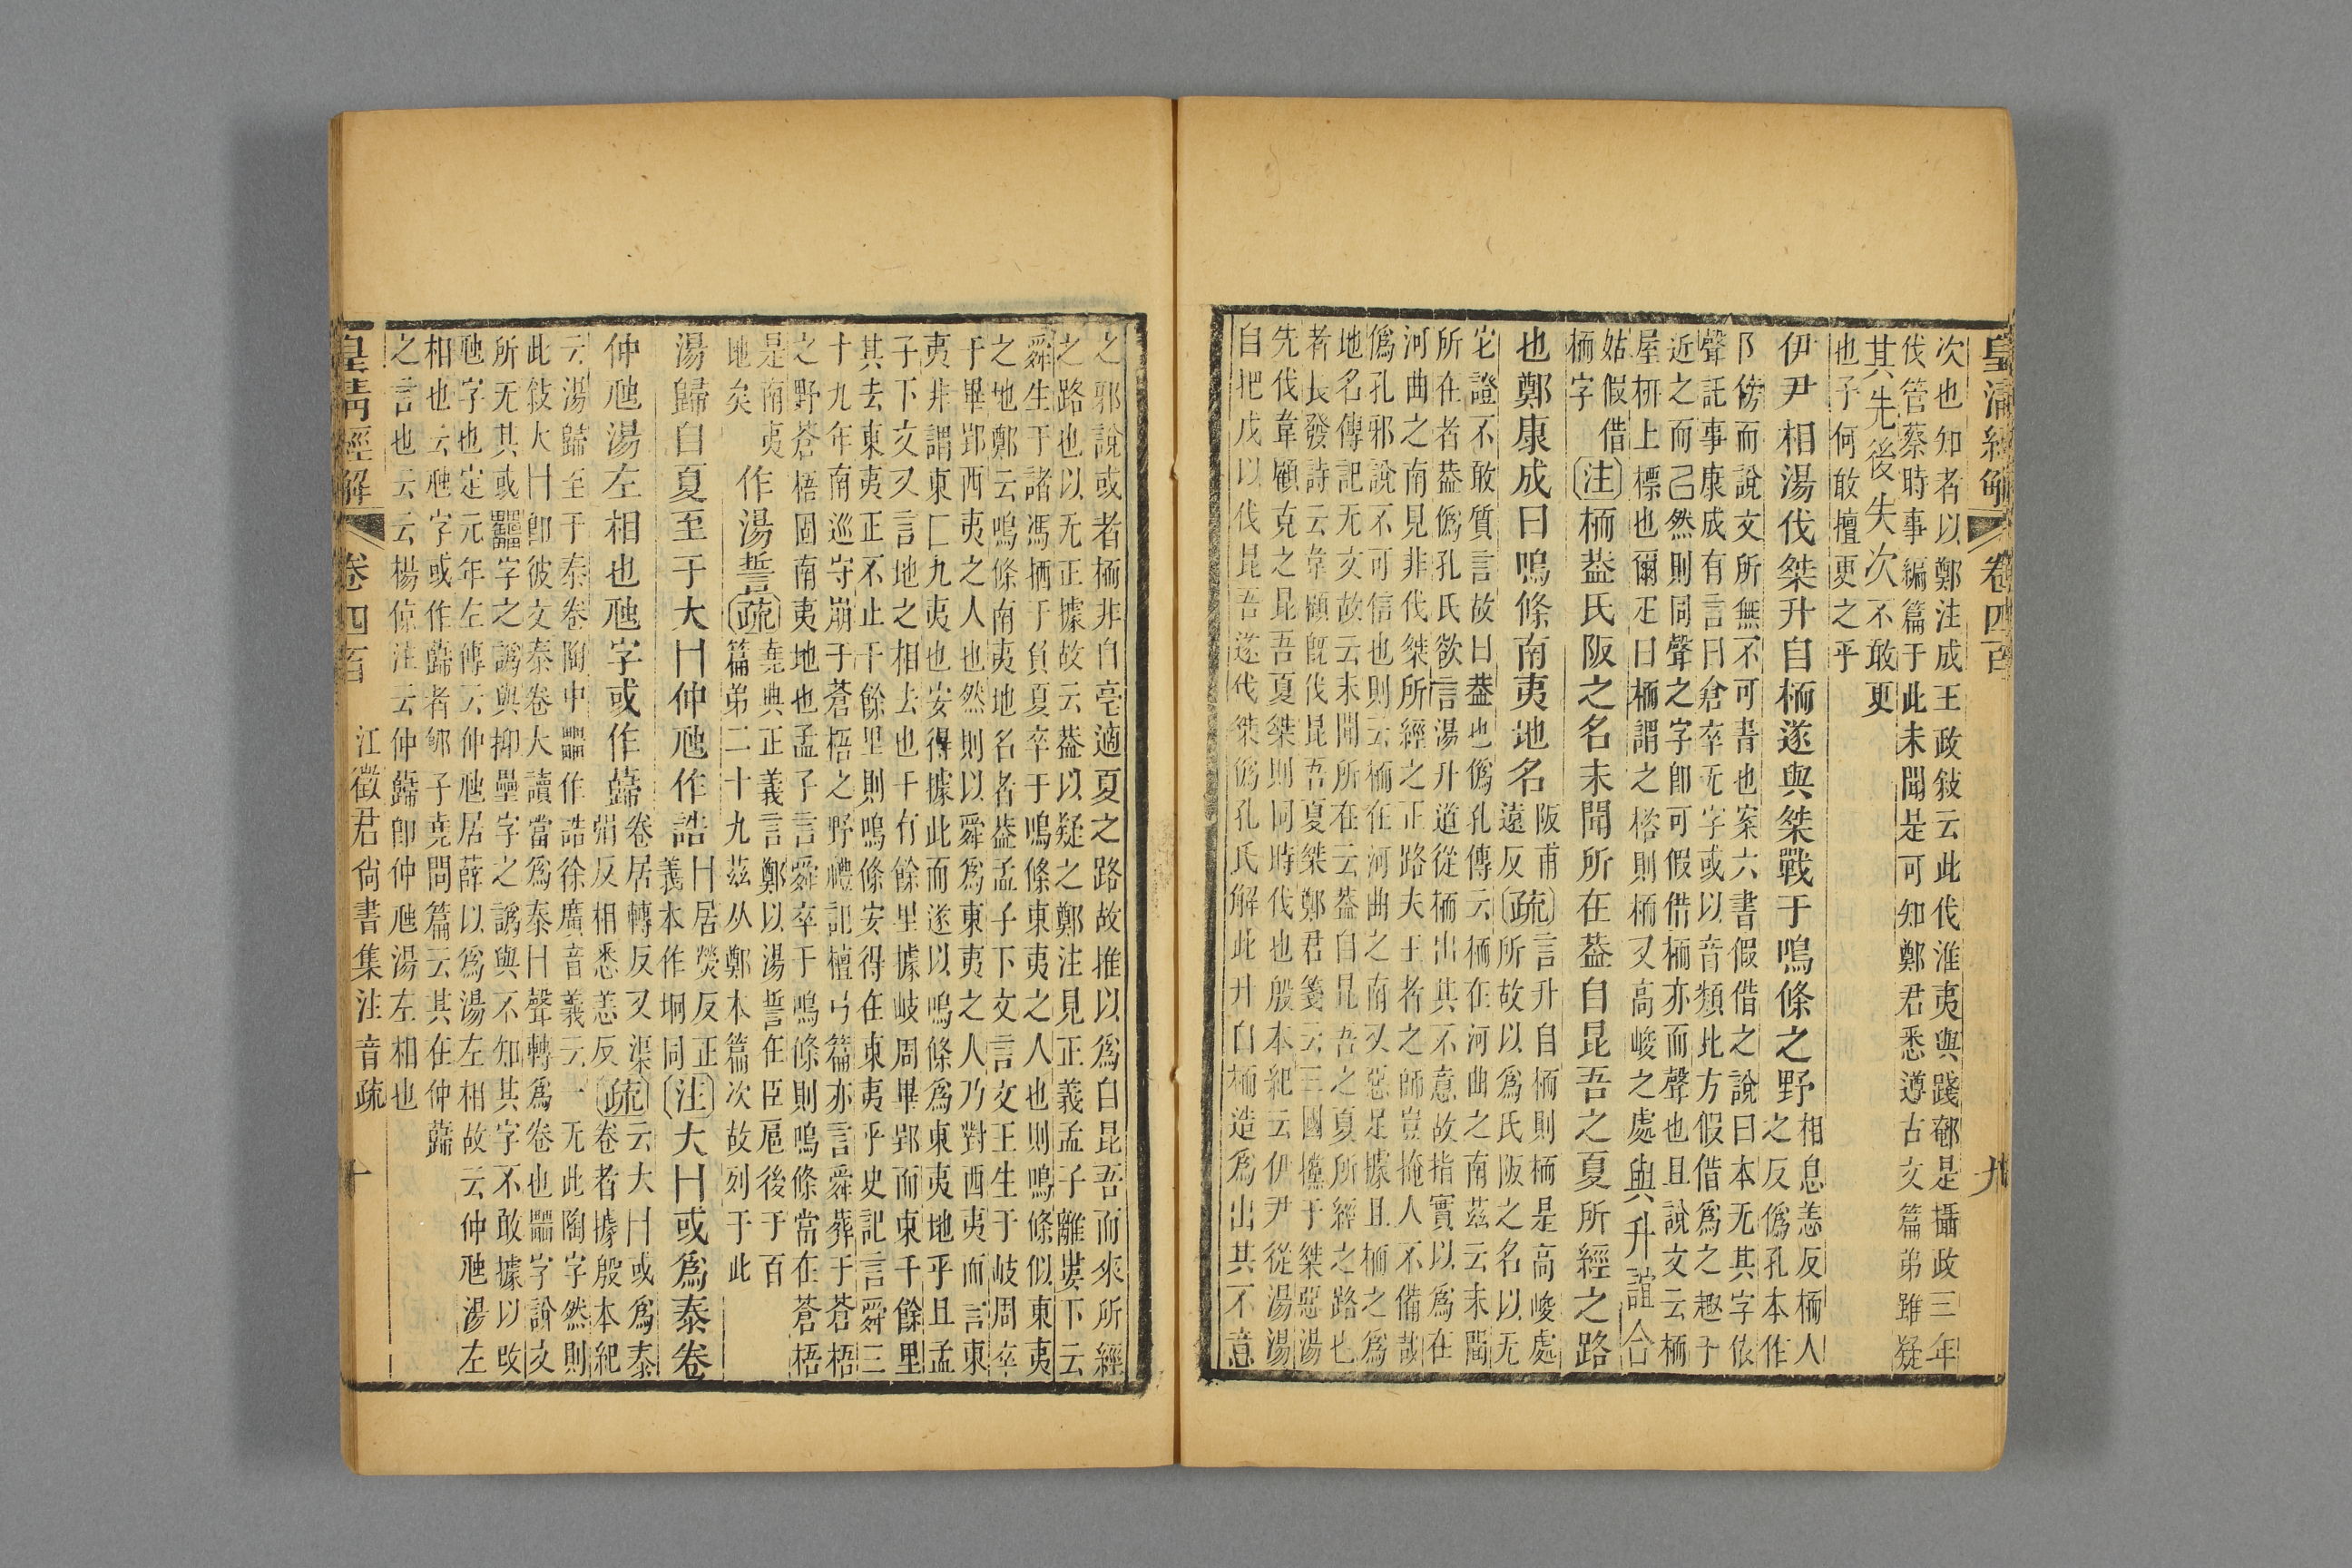 皇清經解 卷四百 九
次也知者以鄭注成王政敍云此伐淮夷與踐奄是攝政三年
伐管蔡時事編篇于此未聞是可知鄭君悉遵古文篇弟雖疑
其先後失次不敢更
也予何敢擅更之乎
伊尹相湯伐桀升自桺遂與桀戰于鳴條之野
相息恙反桺人
之反僞孔本作
阝傍而說文所無不可書也案六書假借之說曰本无其字依
聲託事康成有言曰倉卒无字或以音類比方假借爲之趣于
近之而己然則同聲之字卽可假借桺亦而聲也且說文云桺
屋枅上標也爾疋曰桺謂之楶則桺又高峻之處與升誼合
姑假借
桺字
注桺葢氏阪之名未聞所在葢自昆吾之夏所經之路
也鄭康成曰鳴條南夷地名
阪甫
遠反
疏
言升自桺則桺是高峻處
所故以爲氏阪之名以无
它證不敢質言故曰葢也僞孔傳云桺在河曲之南茲云未聞
所在者葢僞孔氏欲言湯升道從桺出其不意故指實以爲在
河曲之南見非伐桀所經之正路夫王者之師豈掩人不備哉
僞孔邪說不可信也則云桺在河曲之南又惡足據且桺之爲
地名傳記无文故云未聞所在云葢自昆吾之夏所經之路也
者長發詩云韋顧旣伐昆吾夏桀鄭君箋云三國黨于桀惡湯
先伐韋顧克之昆吾夏桀則同時伐也殷本紀云伊尹從湯湯
自把戉以伐昆吾遂伐桀僞孔氏解此升自桺造爲出其不意
之邪說或者桺非自亳適夏之路故推以爲自昆吾而來所經
之路也以无正據故云葢以疑之鄭注見正義孟子離婁下云
舜生于諸馮栖于負夏卒于鳴條東夷之人也則鳴條似東夷
之地鄭云鳴條南夷地名者葢孟子下文言文王生于岐周卒
于畢郢西夷之人也然則以舜爲東夷之人乃對西夷而言東
夷非謂東匚九夷也安得據此而遂以鳴條爲東夷地乎且孟
子下文又言地之相去也千有餘里據岐周畢郢而東千餘里
其去東夷正不止千餘里則鳴條安得在東夷乎史記言舜三
十九年南巡守崩于蒼梧之野禮記檀弓篇亦言舜葬于蒼梧
之野蒼梧固南夷地也孟子言舜卒于鳴條則鳴條當在蒼梧
是南夷
地矣
作湯誓
疏
堯典正義言鄭以湯誓在臣扈後于百
篇弟二十九茲从鄭本篇次故列于此
湯歸自夏至于大冂仲虺作誥
冂居熒反正
義本作坰同
注大冂或爲泰卷
仲虺湯左相也虺字或作蘬
卷居轉反又渠
絹反相悉恙反
疏
云大冂或爲泰
卷者據殷本紀
云湯歸至于泰卷陶中𤳳作誥徐廣音義云一无此陶字然則
此敍大冂卽彼文泰卷大讀當爲泰冂聲轉爲卷也𤳳字說文
所无其或𤴁字之譌與抑壘字之譌與不知其字不敢據以改
虺字也定元年左傳云仲虺居薛以爲湯左相故云仲虺湯左
相也云虺字或作蘬者郇子堯問篇云其在仲蘬
之言也云云楊倞注云仲蘬卽仲虺湯左相也
皇清經解 卷四百 江徵君尙書集注音疏 十